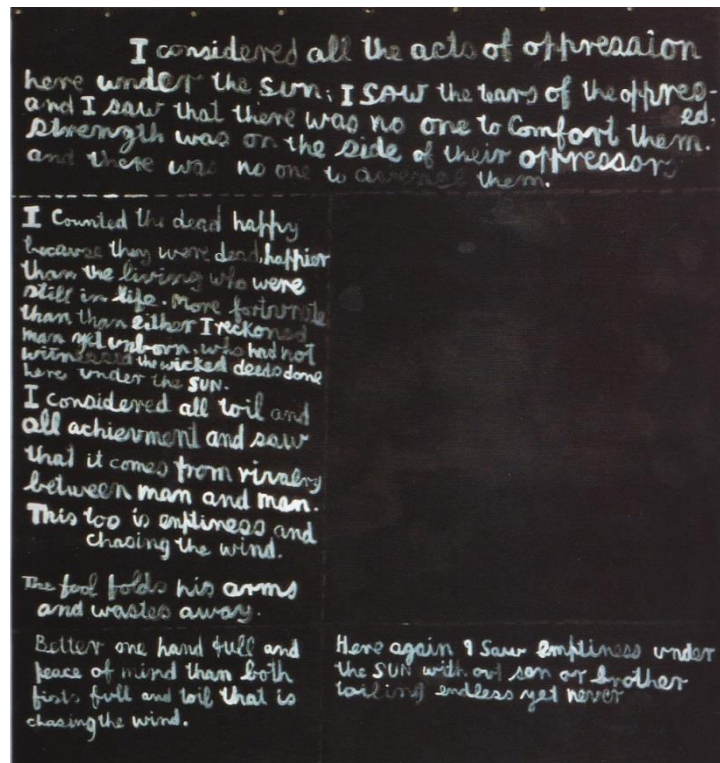 I considered all the acts of oppression
here under the SUN; I SAW the tears of the oppres-
ed.
and I saw that there was no one to Comfort them.
Strength was on the side of their oppressors
and there was no one to avenge them.
I Counted the dead happy
because they were dead, happier
than the living who were
still in life. More fortunate
than than either I reckoned
man yet unborn, who had not
witnessed the wicked deeds done
here under the SUN.
I considered all toil and
all achievment and saw
that it comes from rivalry
between man and man.
This too is emptiness and
chasing the wind.
The fool folds his arms
and wastes away.
Better one hand full and
peace of mind than both
fists full and toil that is
chasing the wind.
Here again I saw emptiness under
the SUN with out son or brother
toiling endless yet never